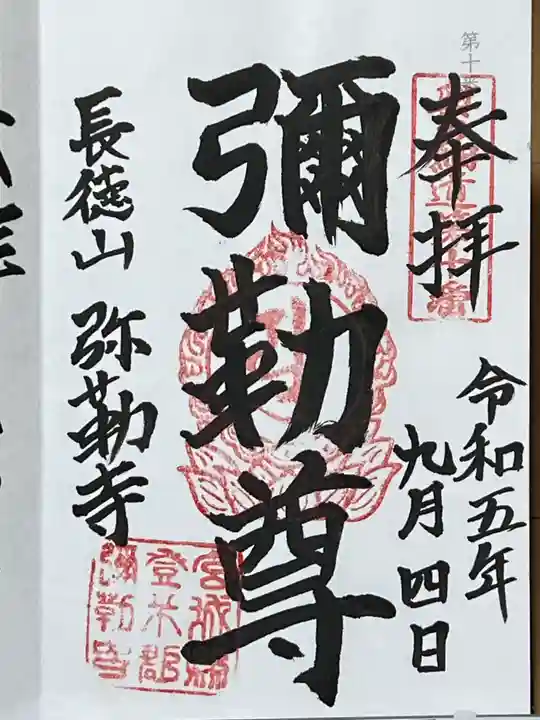 第十番
奉拝
令和五年
九月四日
彌勒尊
長徳山 弥勒寺
宮城縣
登米郡
弥勒寺